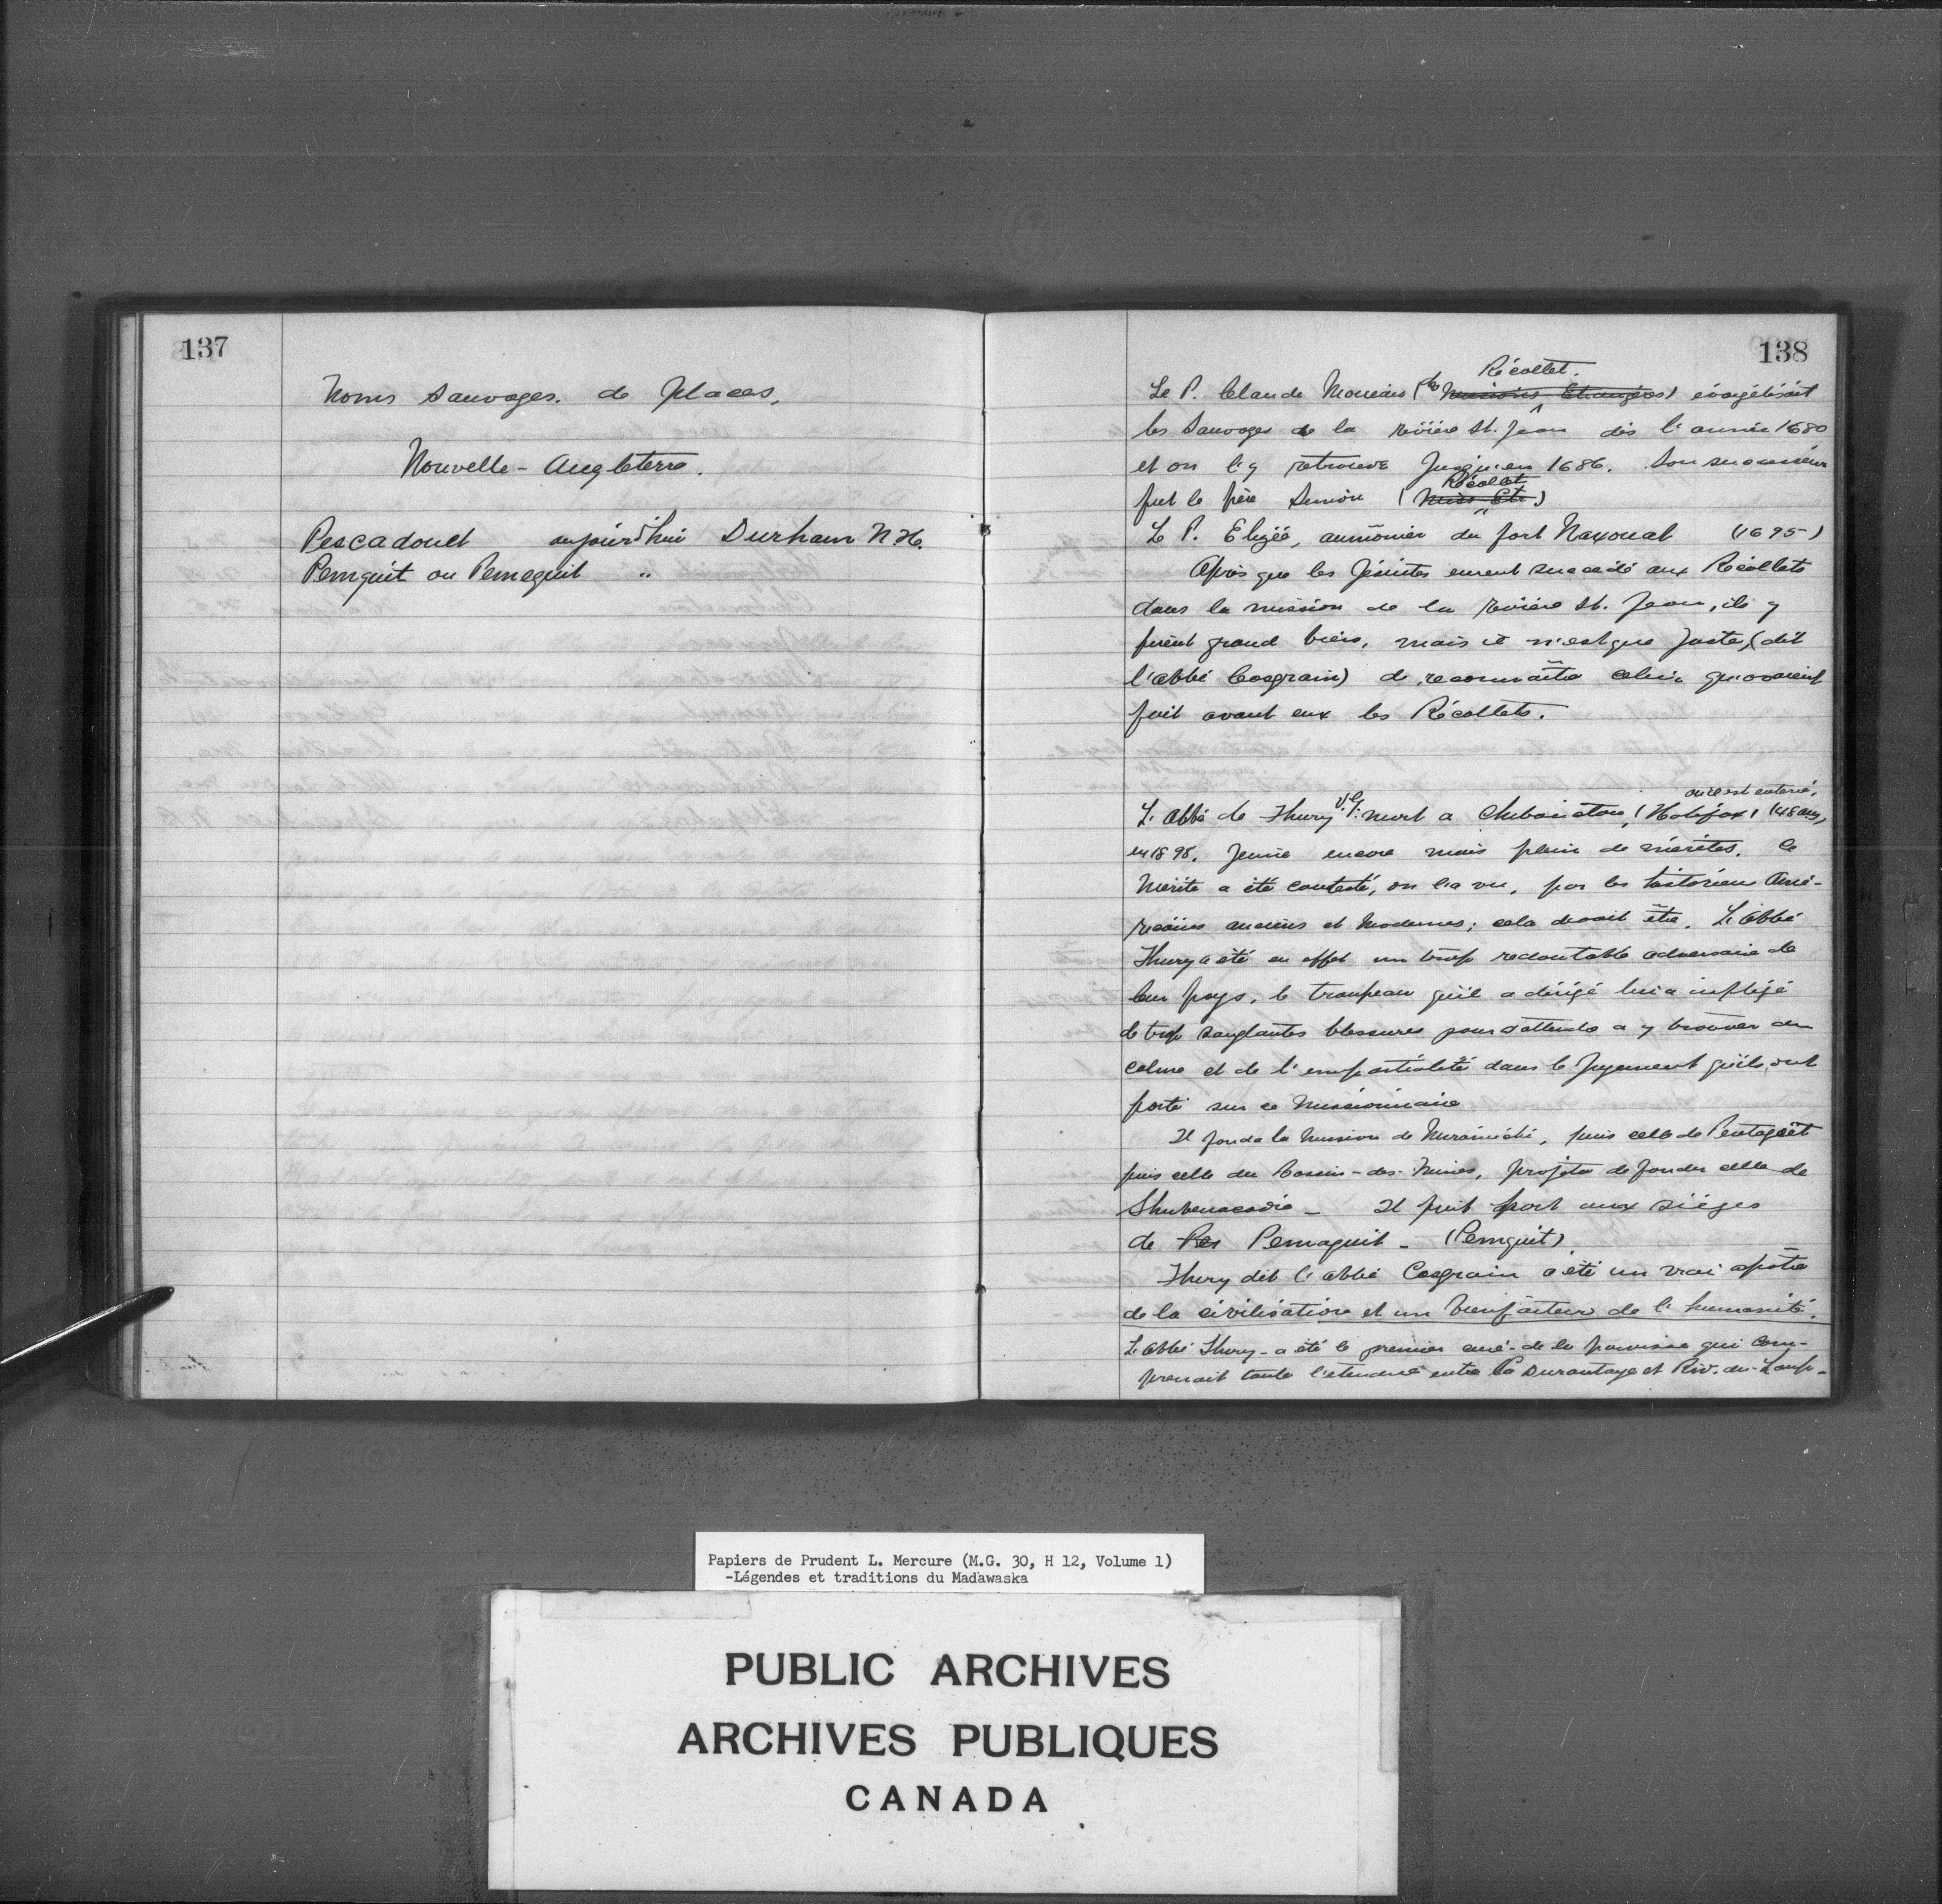 137
Noms Sauvages. de Places.
Nouvelle-Angleterre.
Pescadouet aujourd'hui Durham N.H.
Pemquit ou Pemequit "
138
Récollet.
Le P. Claude Moireau (des Missions Etrangères) évangélisait
les Sauvages de la rivière St. Jean dès l'année 1680
et on l'y retrouve jusqu'en 1686. Son successeur
Récollet
fut le père Simon (Miss. Etr.)
Le P. Elizée, aumônier du fort Naxouat (1695)
Après que les Jésuites eurent succédé aux Récollets
dans la mission de la rivière St. Jean, ils y
firent grand bien, mais il n'est que juste, (dit
l'abbé Casgrain) de reconnaître celui qu'avaient
fait avant eux les Récollets.
où il est enterré,
L'abbé de Thury V.G. mort a Chibouctou, (Halifax) (48 ans,
en 1898. Jeune encore mais plein de mérites. Ce
Mérite a été contesté, on l'a vu, par les historiens Amé-
ricains anciens et Modernes; cela devait être. L'abbé
Thury a été en effet un trop redoutable adversaire de
leur pays, le troupeau qu'il a dirigé lui a infligé
de trop sanglantes blessures pour s'attendre a y trouver du
calme et de l'impartialité dans le jugement qu'ils ont
porté sur ce Missionnaire
Il fonda la Mission de Miramichi, puis celle de Pentagöet
puis celle du Bassin-des-Mines, projeta de fonder celle de
Shubenacadie - Il prit part aux sièges
de Pes Pemaquit - (Pemquit)
Thury dit l'abbé Casgrain a été un vrai apôtre
de la civilisation et un bienfaiteur de l'humanité.
L'abbé Thury - a été le premier curé de la paroisse qui com-
prenait toute l'étendue entre La Durantaye et Riv.-du-Loup-
Papiers de Prudent L. Mercure (M.G. 30, H 12, Volume 1)
-Légendes et traditions du Madawaska
PUBLIC ARCHIVES
ARCHIVES PUBLIQUES
CANADA